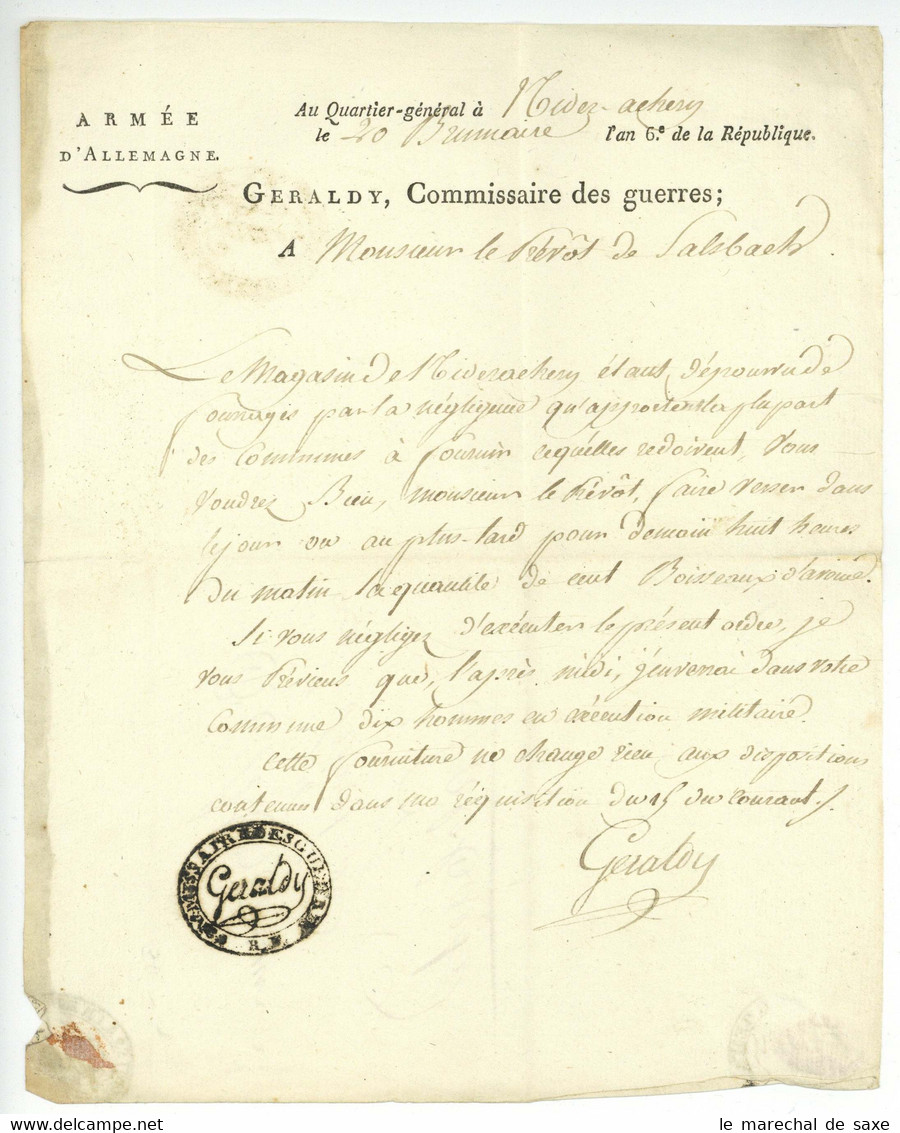 ARMÉE
D'ALLEMAGNE.
Au Quartier-général à Nider-achern
le 20 Brumaire l'an 6.e de la République.
GERALDY, Commissaire des guerres;
A Monsieur le Prévôt de Salsbach.
Le Magasin de Niderachern étant dépourvu de
fourages par la négligence qu'apportent la plupart
des Communes à fournir cequ'elles redoivent, Vous
voudrez Bien, monsieur le Prévôt, faire verser dans
le jour ou au plus-tard pour demain huit heures
du matin la quantité de cent Boisseaux d'avoine.
Si vous négligez d'exécuter le présent ordre, je
vous Préviens que, l'après midi, j'enverrai dans votre
Commune dix hommes en exécution militaire.
Cette fourniture ne change rien aux dispositions
contenues dans ma réquisition du 15 du courant.
Geraldy
COMMISSAIRE DES GUERRES
Geraldy
R F
le marechal de saxe